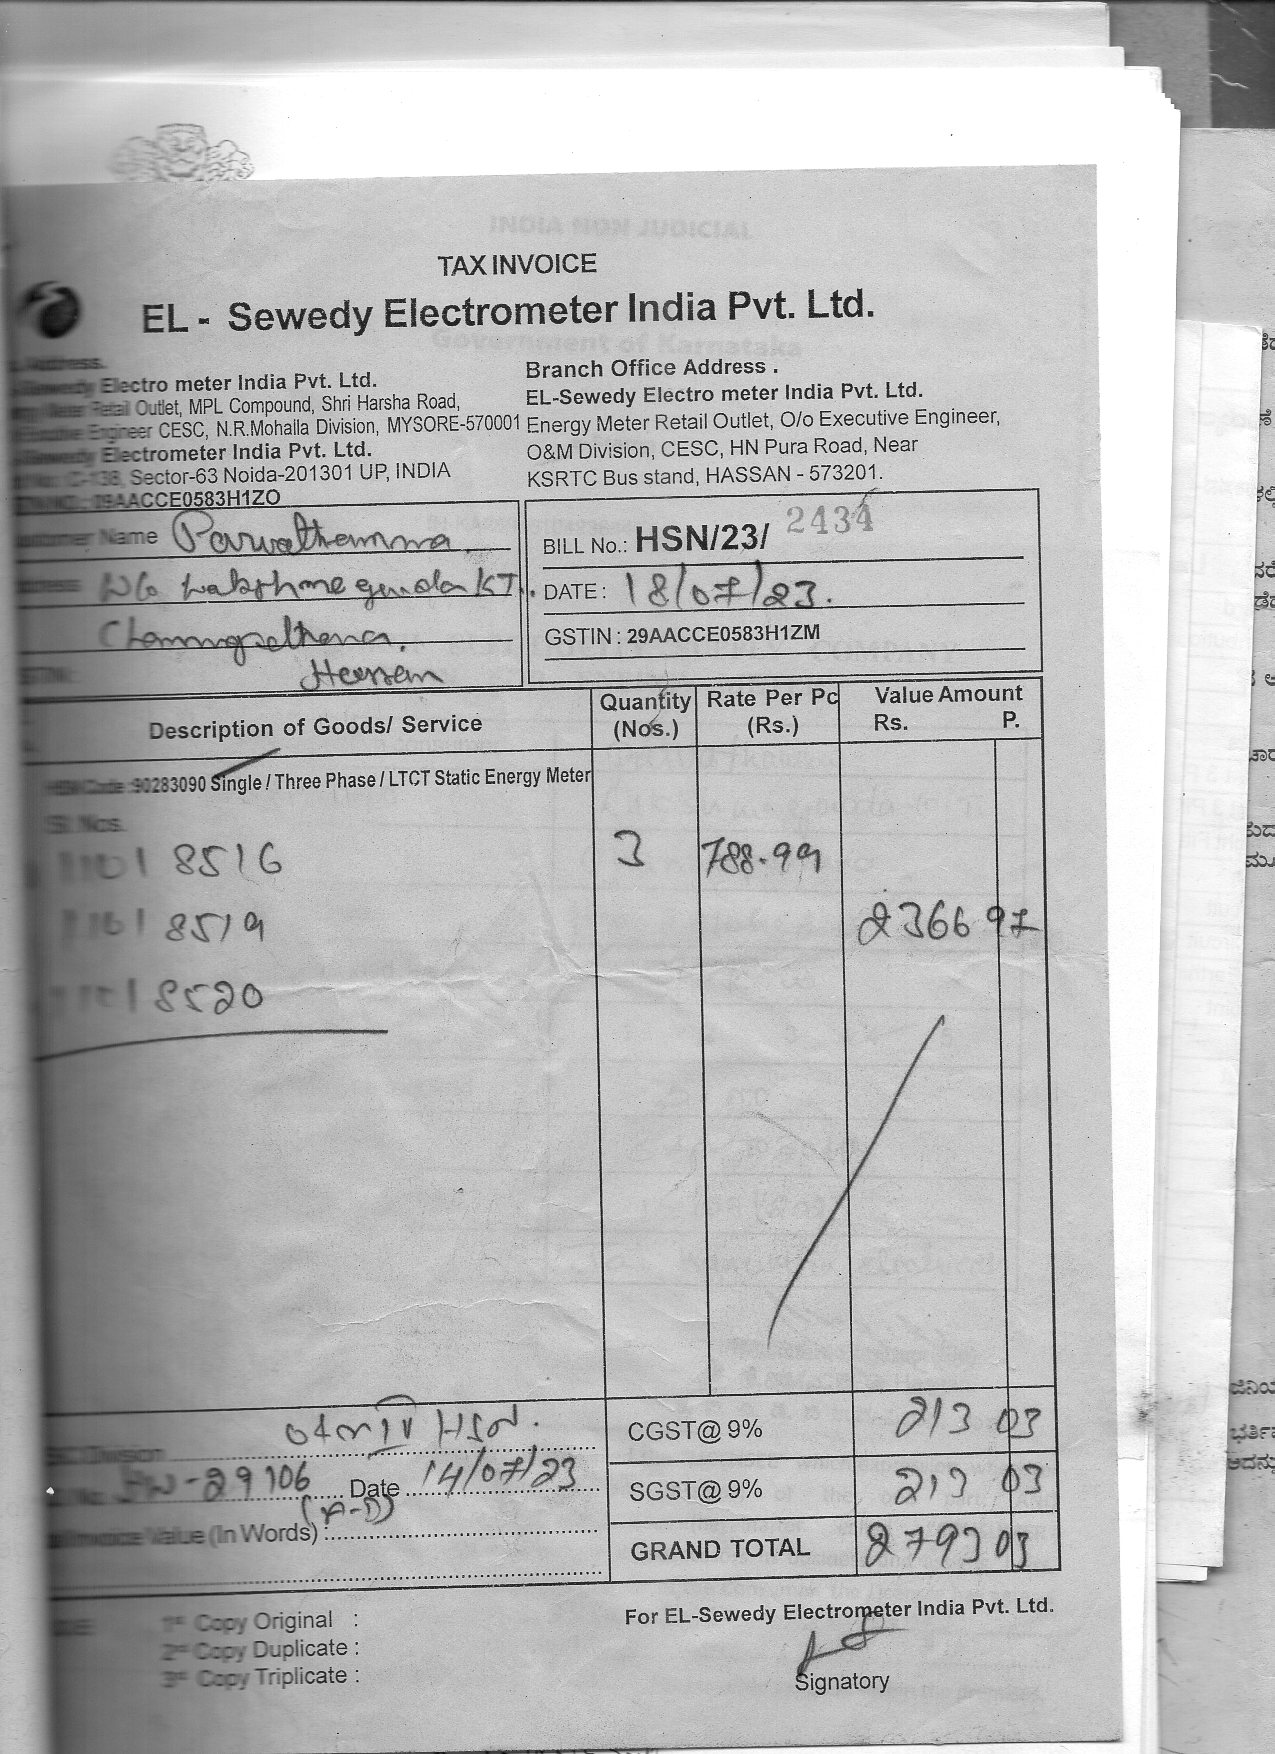 INDIA NON JUDICIAL
TAX INVOICE
EL - Sewedy Electrometer India Pvt. Ltd.
Government of Karnataka
Address.
Sewedy Electro meter India Pvt. Ltd.
Retail Outlet, MPL Compound, Shri Harsha Road,
Executive Engineer CESC, N.R.Mohalla Division, MYSORE-570001
Sewedy Electrometer India Pvt. Ltd.
C-138, Sector-63 Noida-201301 UP, INDIA
29AACCE0583H1ZO
Branch Office Address .
EL-Sewedy Electro meter India Pvt. Ltd.
Energy Meter Retail Outlet, O/o Executive Engineer,
O&M Division, CESC, HN Pura Road, Near
KSRTC Bus stand, HASSAN - 573201.
Customer Name Parvathamma
KT.
Hassan
BILL No.: HSN/23/ 2434
DATE : 18/07/23.
GSTIN : 29AACCE0583H1ZM
Description of Goods/ Service
Quantity (Nos.)
Rate Per Pc (Rs.)
Value Amount
Rs. P.
HSN Code :90283090 Single / Three Phase / LTCT Static Energy Meter
Sl. Nos.
8516
3 788.99
8519
2366 97
8520
CGST@ 9% 213 03
Division
SGST@ 9% 213 03
29106 Date 14/07/23
Invoice Value (In Words) :
GRAND TOTAL 2793 03
1st Copy Original :
2nd Copy Duplicate :
3rd Copy Triplicate :
For EL-Sewedy Electrometer India Pvt. Ltd.
Signatory